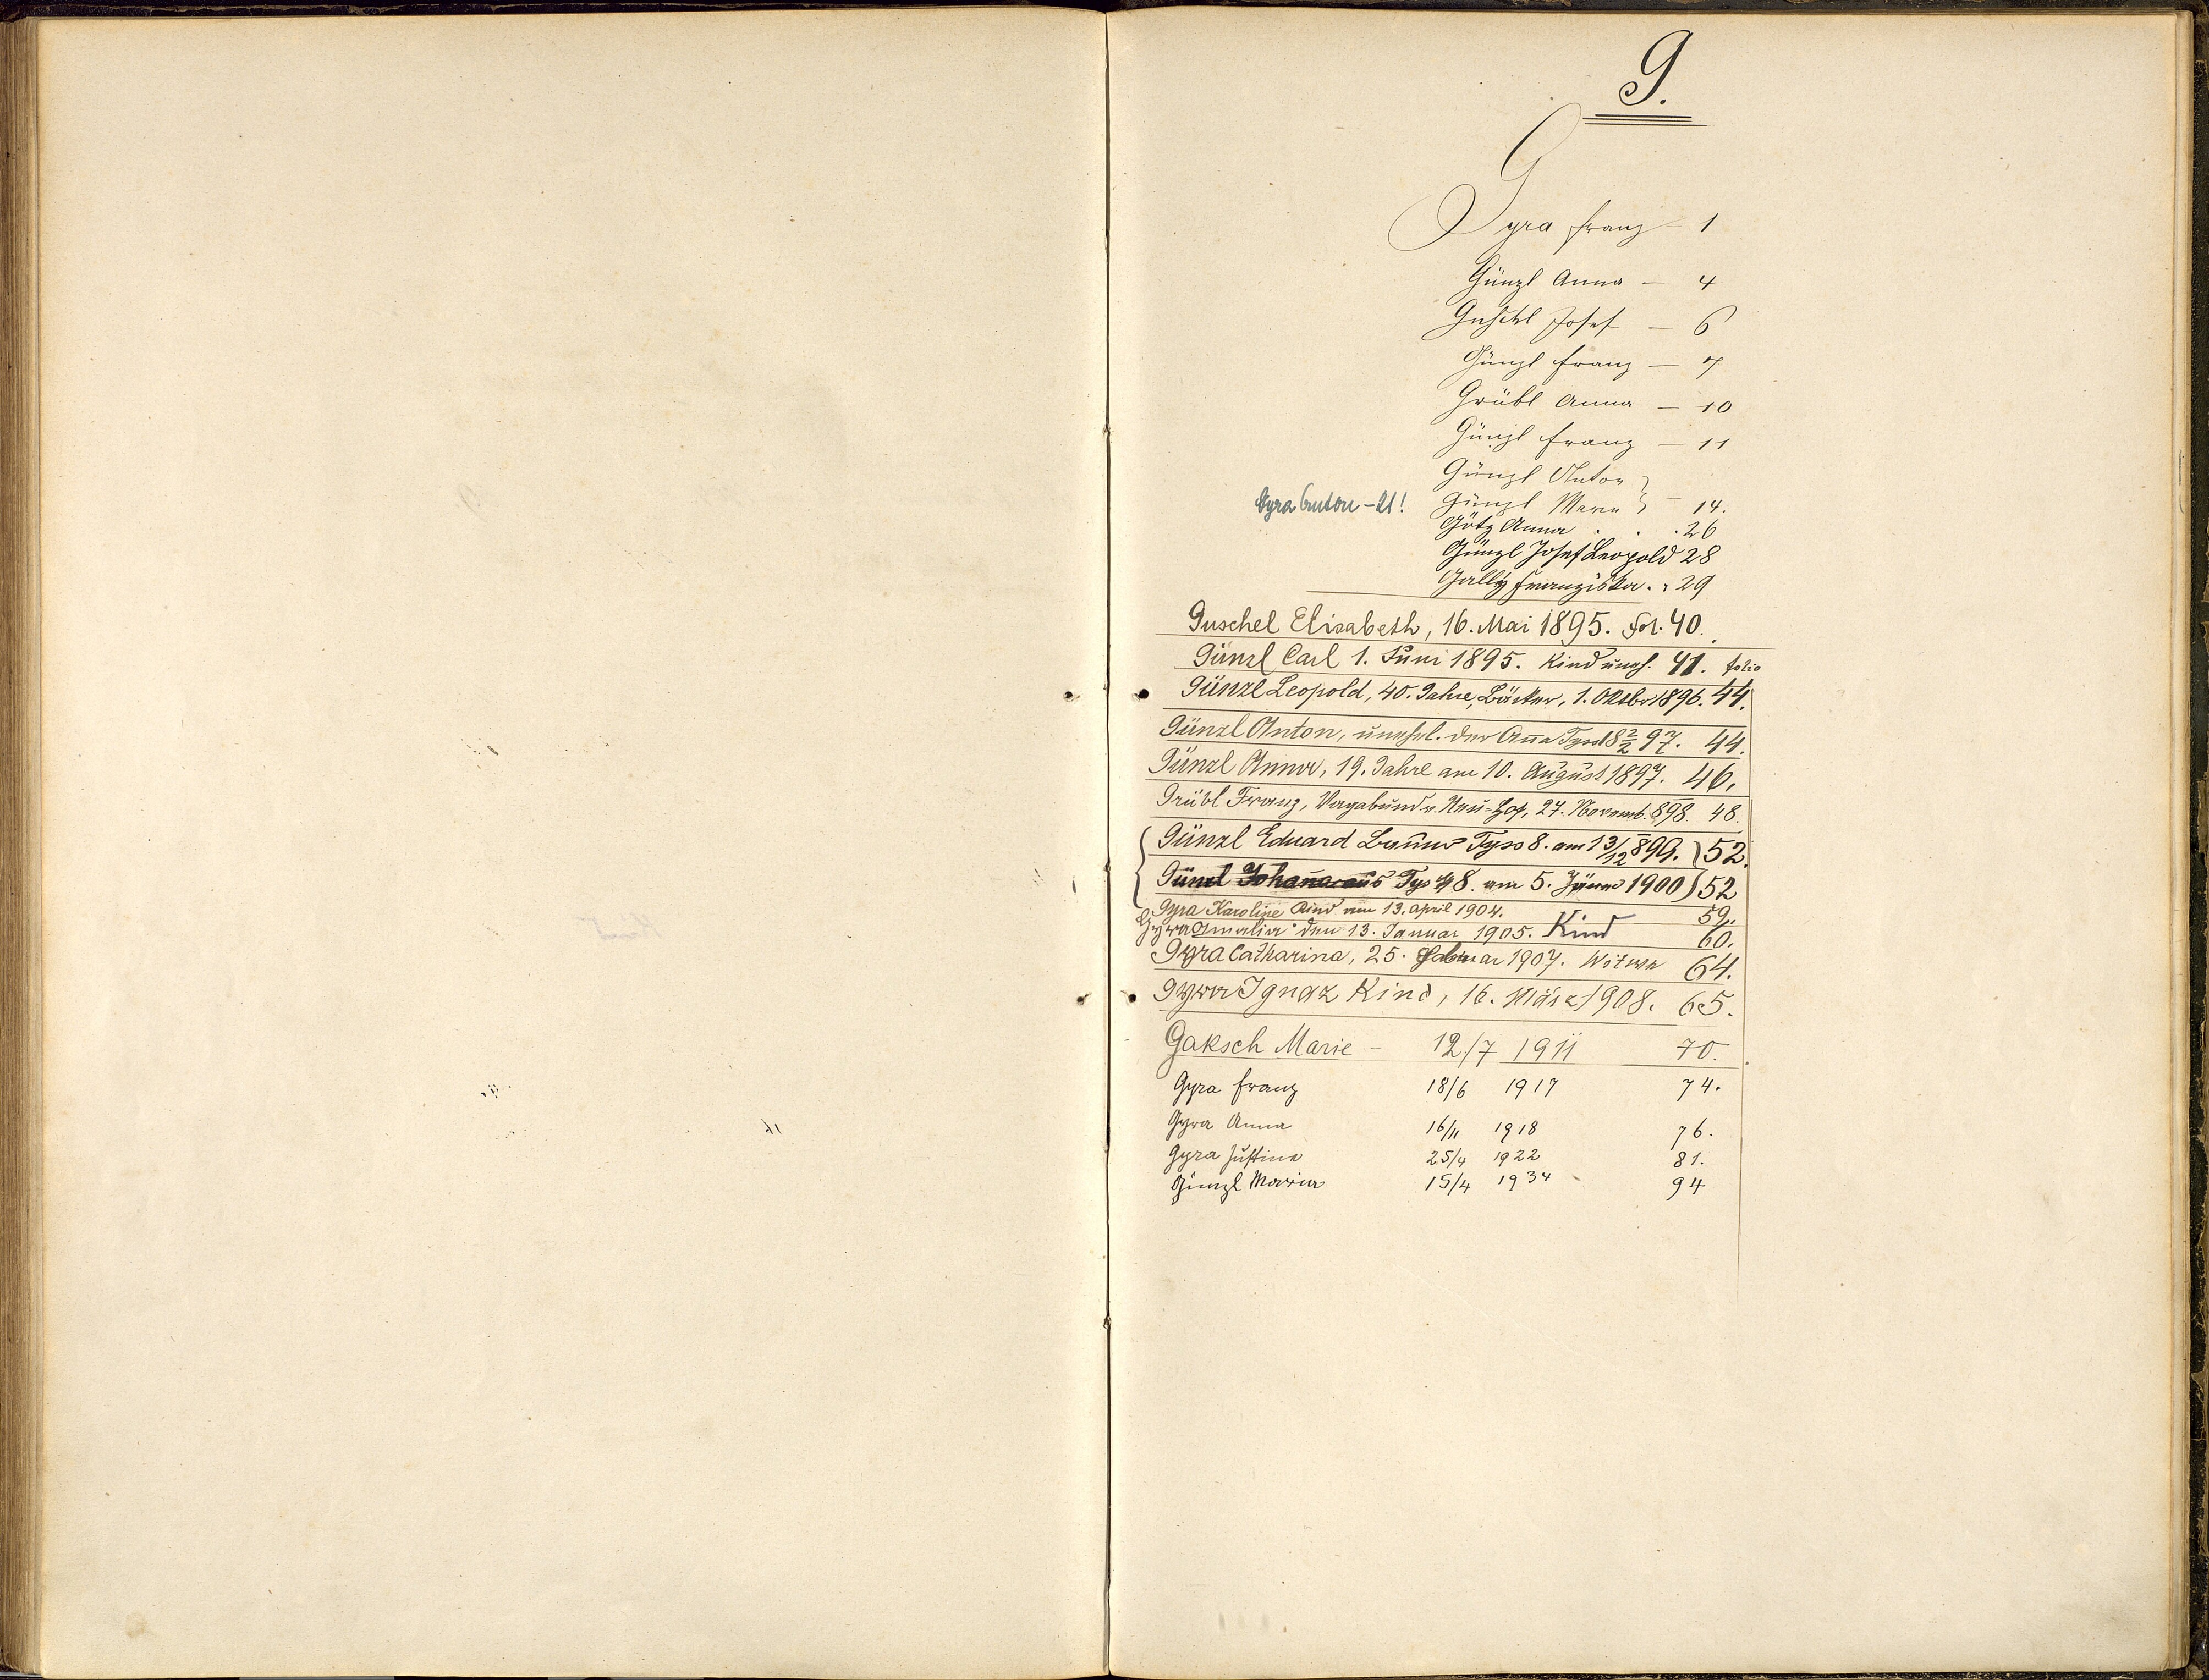 G.
Gyra Franz - 1
Günzl Anna - 4
Guschl Josef - 6
Günzl Franz - 7
Grübl Anna - 10
Günzl Franz - 11
Günzl Anton
Gyra Anton - 21!
Günzl Maria } - 14.
Götz Anna . . . 26
Günzl Josef Leopold 28
Gally Franziska . . 29
Guschel Elisabeth, 16. Mai 1895. Fol. 40.
Günzl Carl 1. Juni 1895. Kind 41. folio
Günzl Leopold, 40. Jahre, Bäcker, 1. Oktbr 1896. 44.
Günzl Anton, unehel. der Aña Tyss 18 2/2 97. 44.
Günzl Anna, 19. Jahre am 10. August 1897. 46.
Grübl Franz, Vagabund v. Neu-Hof, 27. Novemb. 898. 48.
Günzl Eduard Tyss 8. am 13/12 899. } 52.
Günzl Johaña aus Tyss 8. am 5. Jäner 1900 } 52
Gyra Karoline Kind am 13. April 1904. 59.
Gyra Amalia den 13. Januar 1905. Kind 60.
Gyra Catharina, 25. Februar 1907. Witwe 64.
Gyra Ignaz Kind, 16. März 1908. 65.
Gaksch Marie - 12/7 1911 70.
Gyra Franz 18/6 1917 74.
Gyra Anna 16/11 1918 76.
Gyra Justina 25/4 1922 81.
Günzl Maria 15/4 1934 94